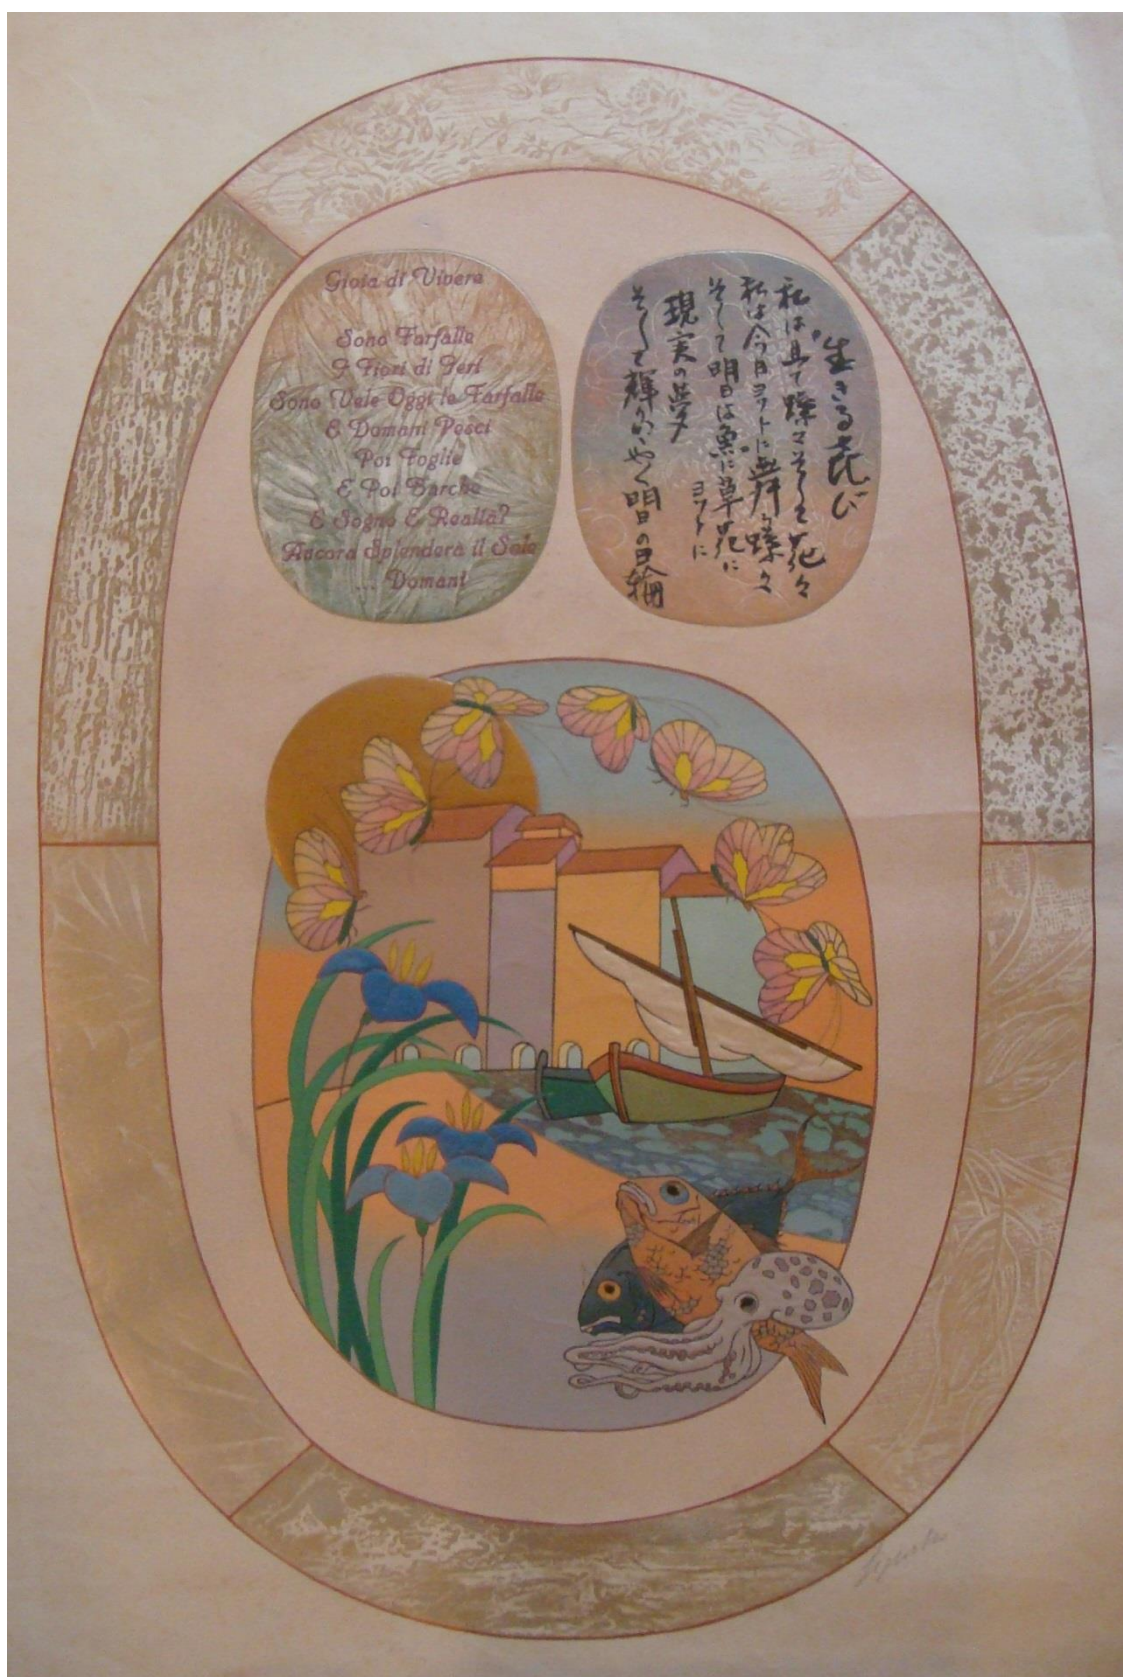 Gioia di Vivere
Sono Farfalle
I Fiori di Ieri
Sono Vele Oggi le Farfalle
E Domani Pesci
Poi Foglie
E Poi Barche
E Sogno E Realtà?
Ancora Splenderà il Sole
... Domani
生きる喜び
私は且て蝶々そして花々
私は今日ヨットに舞う蝶々
そして明日は魚に草花に
ヨットに
現実の夢
そして明日の日輪